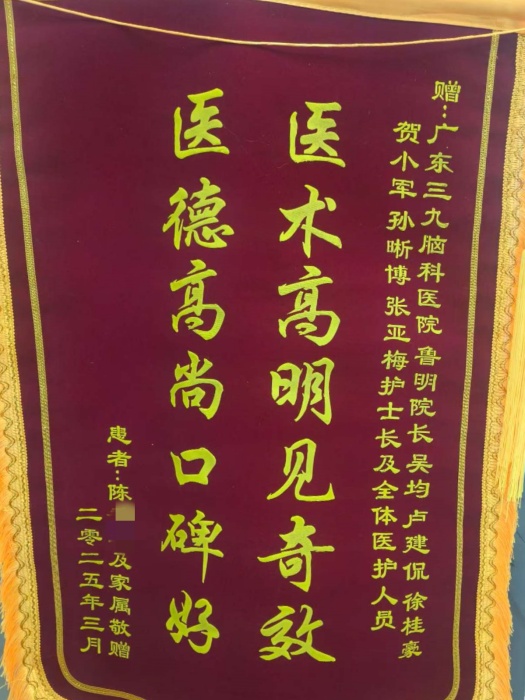 赠：广东三九脑科医院鲁明院长吴均卢建侃徐桂豪
贺小军孙晰博张亚梅护士长及全体医护人员
医术高明见奇效
医德高尚口碑好
患者：陈 及家属敬赠
二零二五年三月